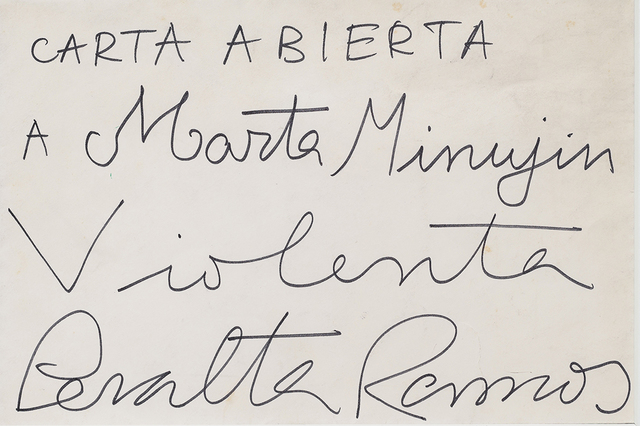 CARTA ABIERTA
A Marta Minujin
Violenta
Peralta Ramos